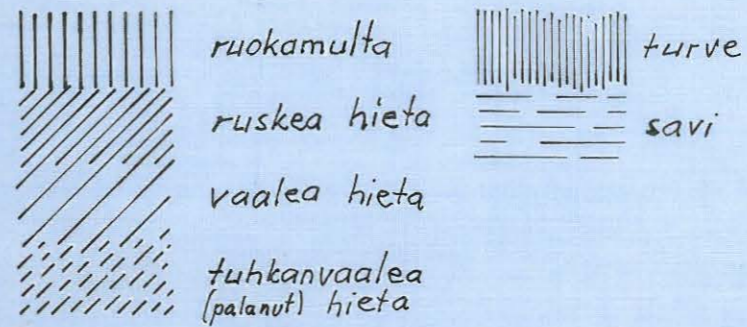 ruokamulta
ruskea hieta
vaalea hieta
tuhkanvaalea
(palanut) hieta
turve
savi